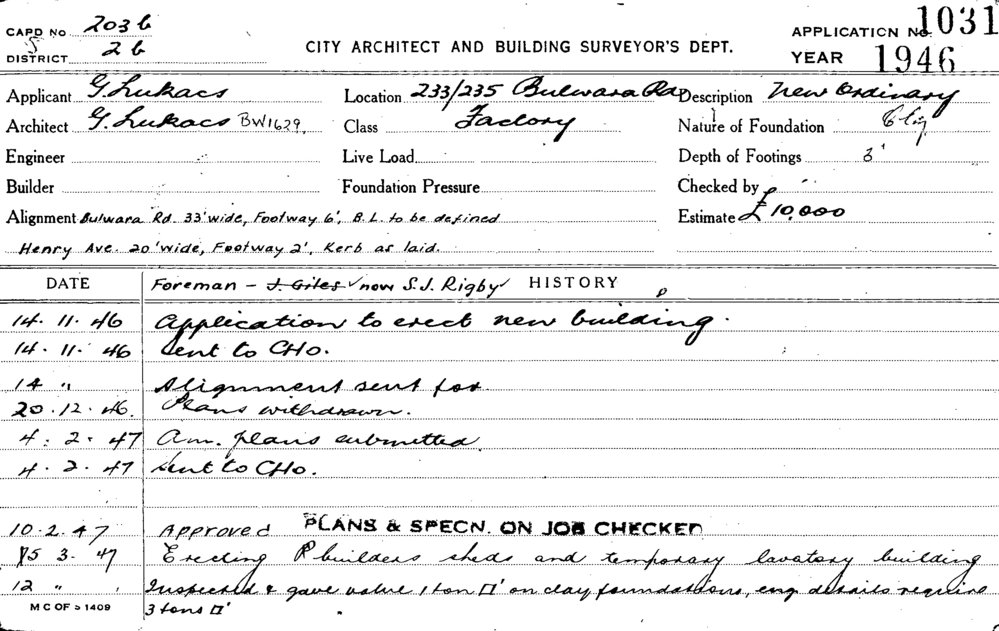 CARD No 203b APPLICATION No. 1031
DISTRICT 2b CITY ARCHITECT AND BUILDING SURVEYOR'S DEPT. YEAR 1946
Applicant G. Lukacs Location 233/235 Bulwara Rd Description New Ordinary
Architect G. Lukacs BW1629. Class Factory Nature of Foundation Clay
Engineer Live Load Depth of Footings 3'
Builder Foundation Pressure Checked by
Alignment Bulwara Rd. 33' wide, Footway 6', B.L. to be defined Estimate £10,000
Henry Ave. 20' wide, Footway 2', Kerb as laid.
DATE Foreman - J. Giles now S.J. Rigby HISTORY
14. 11. 46 Application to erect new building.
14. 11. 46 Sent to CHO.
14 " Alignment sent for
20. 12. 46. Plans withdrawn.
4. 2. 47 Am. plans submitted
4. 2. 47 Sent to CHO.
10. 2. 47 Approved PLANS & SPECN. ON JOB CHECKED
5 3. 47 Erecting builders sheds and temporary lavatory building
12 " Inspected & gave value 1 ton □' on clay foundations, eng details require
M C OF S 1409 3 tons □'